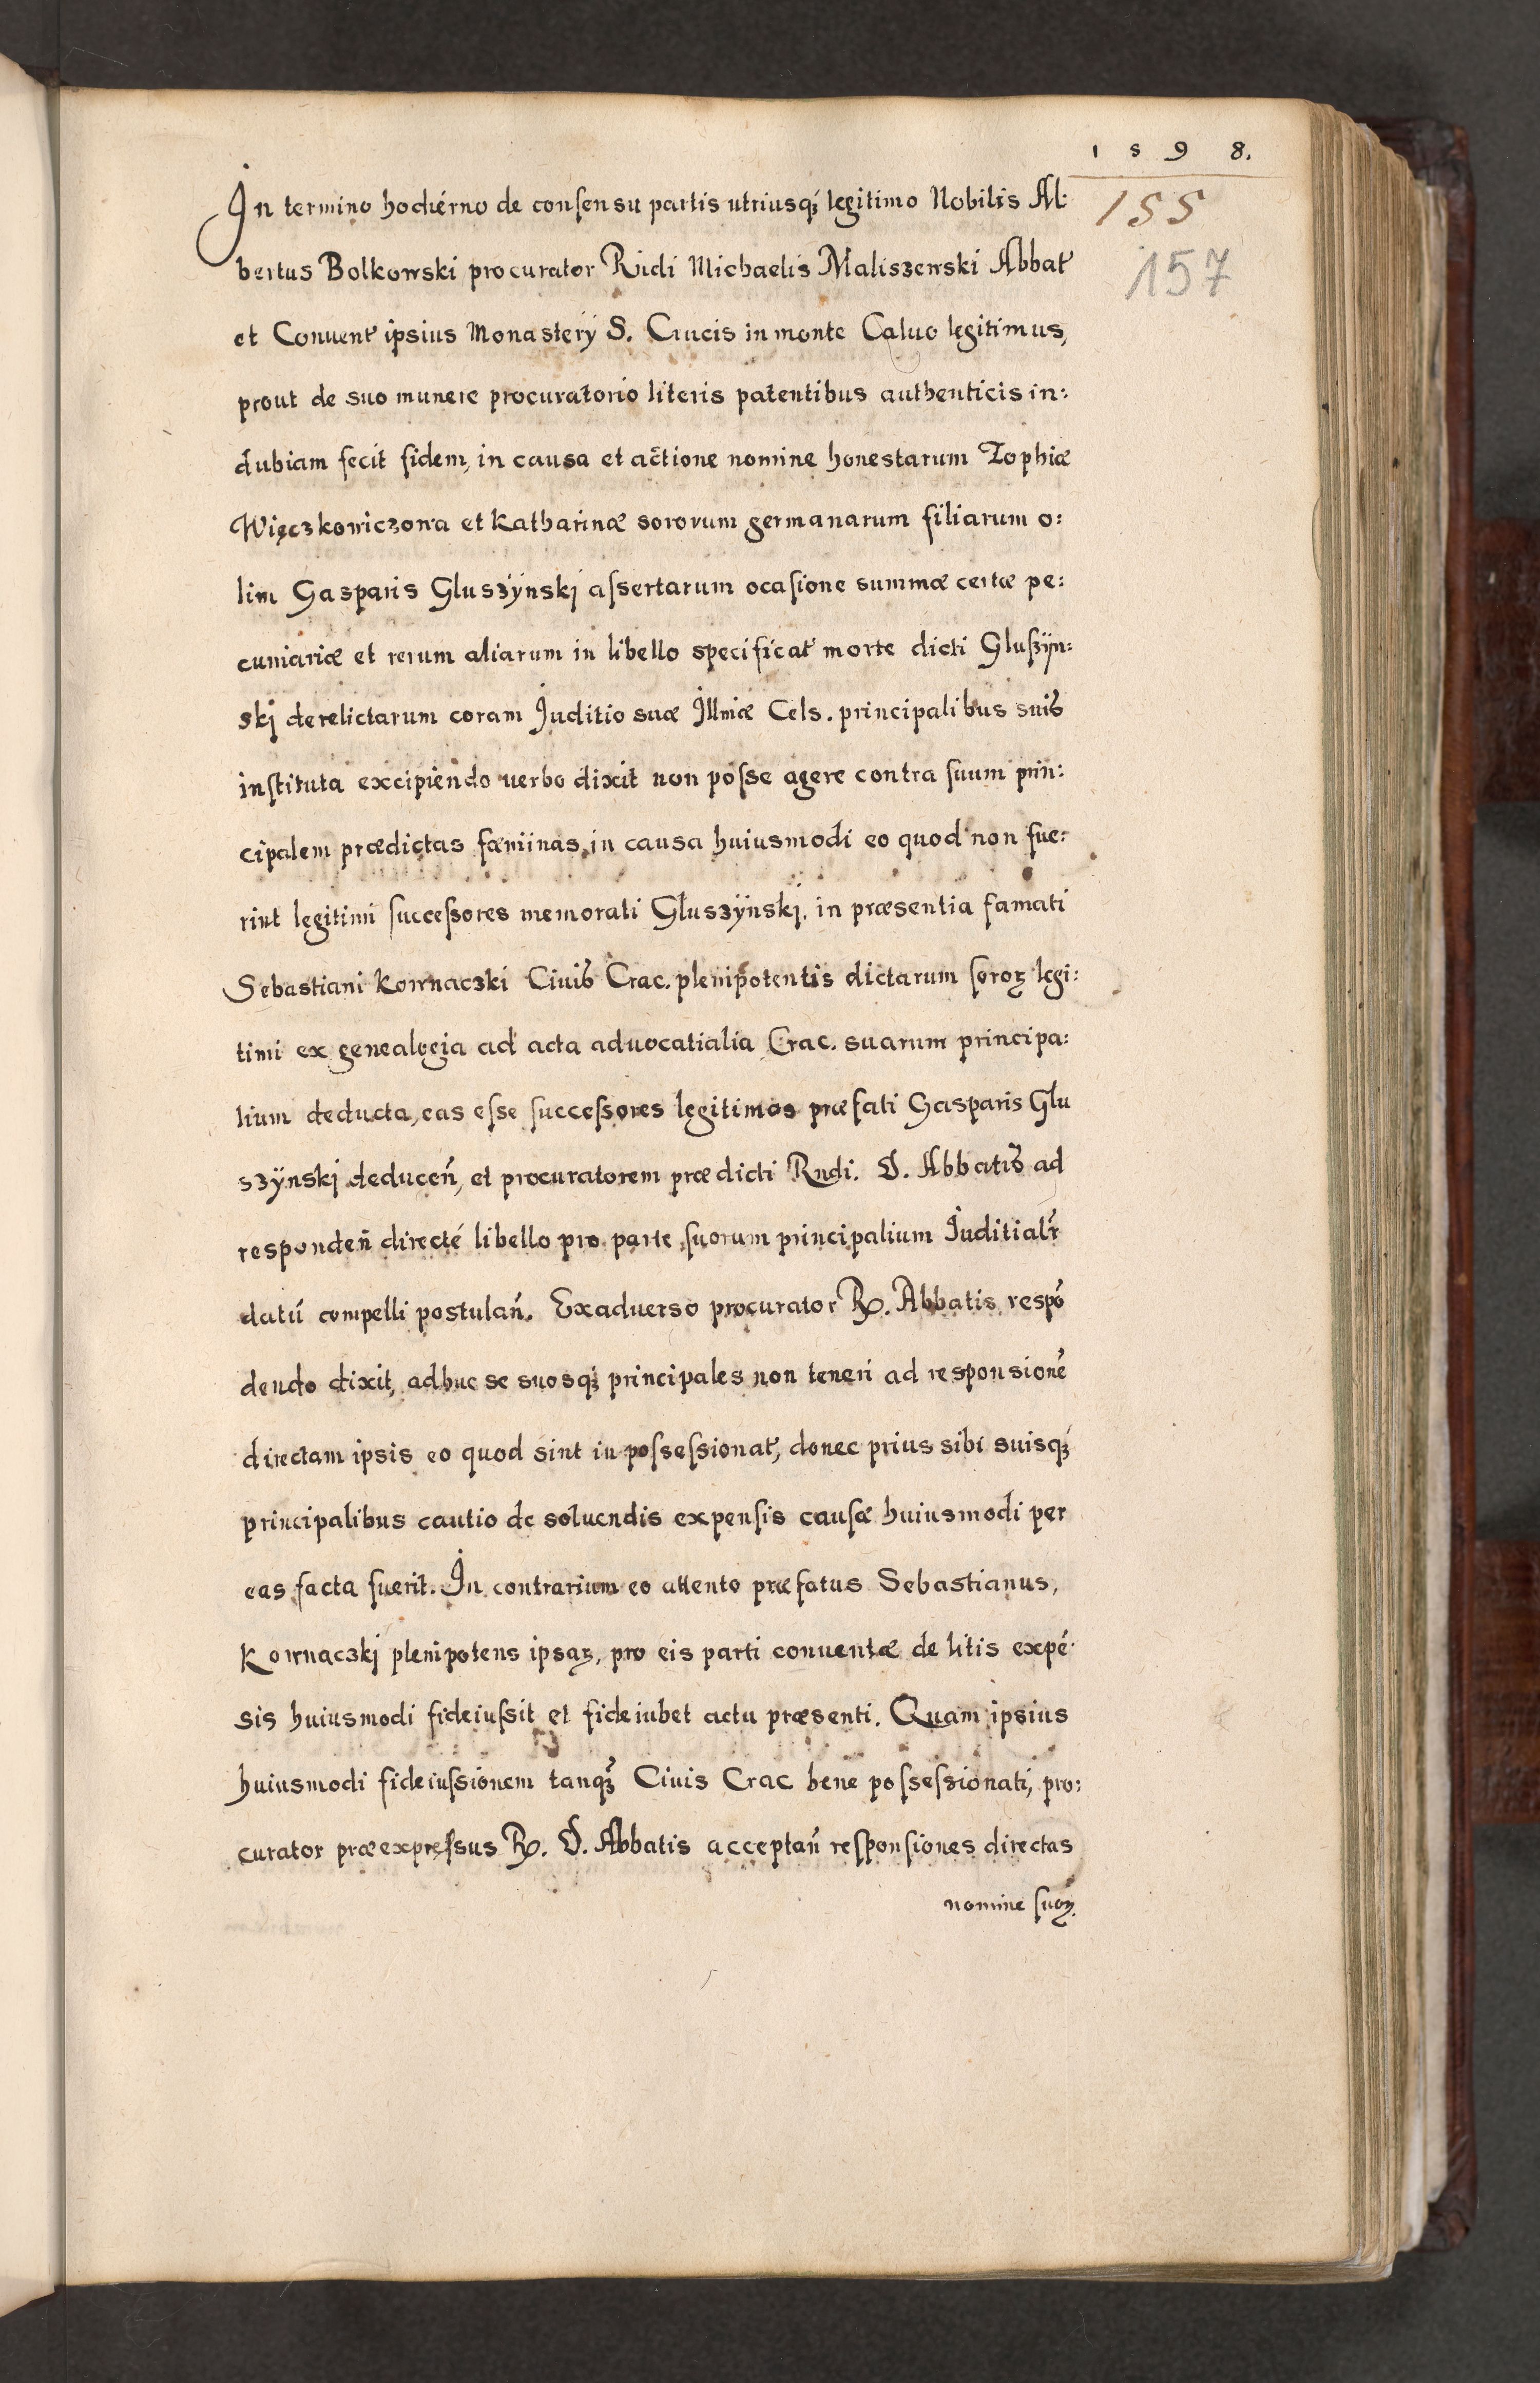 1598.
155
157
In termino hodierno de consensu partis utriusq; legitimo Nobilis Al:
bertus Bolkowski procurator Rndi Michaelis Maliszewski Abbat~
et Conuent~ ipsius Monasterÿ S. Crucis in monte Caluo legitimus,
prout de suo munere procuratorio literis patentibus authenticis in:
dubiam fecit fidem, in causa et actione nomine honestarum Zophiæ
Więczkowiczowa et Katharinæ sororum germanarum filiarum o:
lim Gasparis Gluszÿnskj assertarum ocasione summæ certæ pe:
cuniariæ et rerum aliarum in libello specificat~ morte dicti Gluszÿn:
skj derelictarum coram Juditio suæ Illmæ Cels. principalibus suis
instituta excipiendo verbo dixit non posse agere contra suum prin:
cipalem prædictas fæminas in causa huiusmodi eo quod non fue:
rint legitimi successores memorati Gluszÿnskj. in præsentia famati
Sebastiani Kownaczki Ciuis Crac. plenipotentis dictarum soroꝝ legi:
timi ex genealogia ad acta aduocatialia Crac. suarum principa:
lium deducta, eas esse successores legitimos præfati Gasparis Glu
szÿnskj deduceñ, et procuratorem prædicti Rndi. D. Abbatis ad
respondeñ directé libello pro parte suorum principalium Juditialr~
datū compelli postulañ. Exaduerso procurator R. Abbatis respō
dendo dixit, adhuc se suosq; principales non teneri ad responsionē
directam ipsis eo quod sint in possessionat~, donec prius sibi suisq;
principalibus cautio de soluendis expensis causæ huiusmodi per
eas facta fuerit. In contrarium eo attento præfatus Sebastianus,
Kownaczkj plenipotens ipsaꝝ, pro eis parti conuentæ de litis expē
sis huiusmodi fideiussit et fideiubet actu præsenti. Quam ipsius
huiusmodi fideiussionem tanq; Ciuis Crac bene possessionati, pro:
curator præexpressus R. D. Abbatis acceptañ responsiones directas
nomine suoꝝ